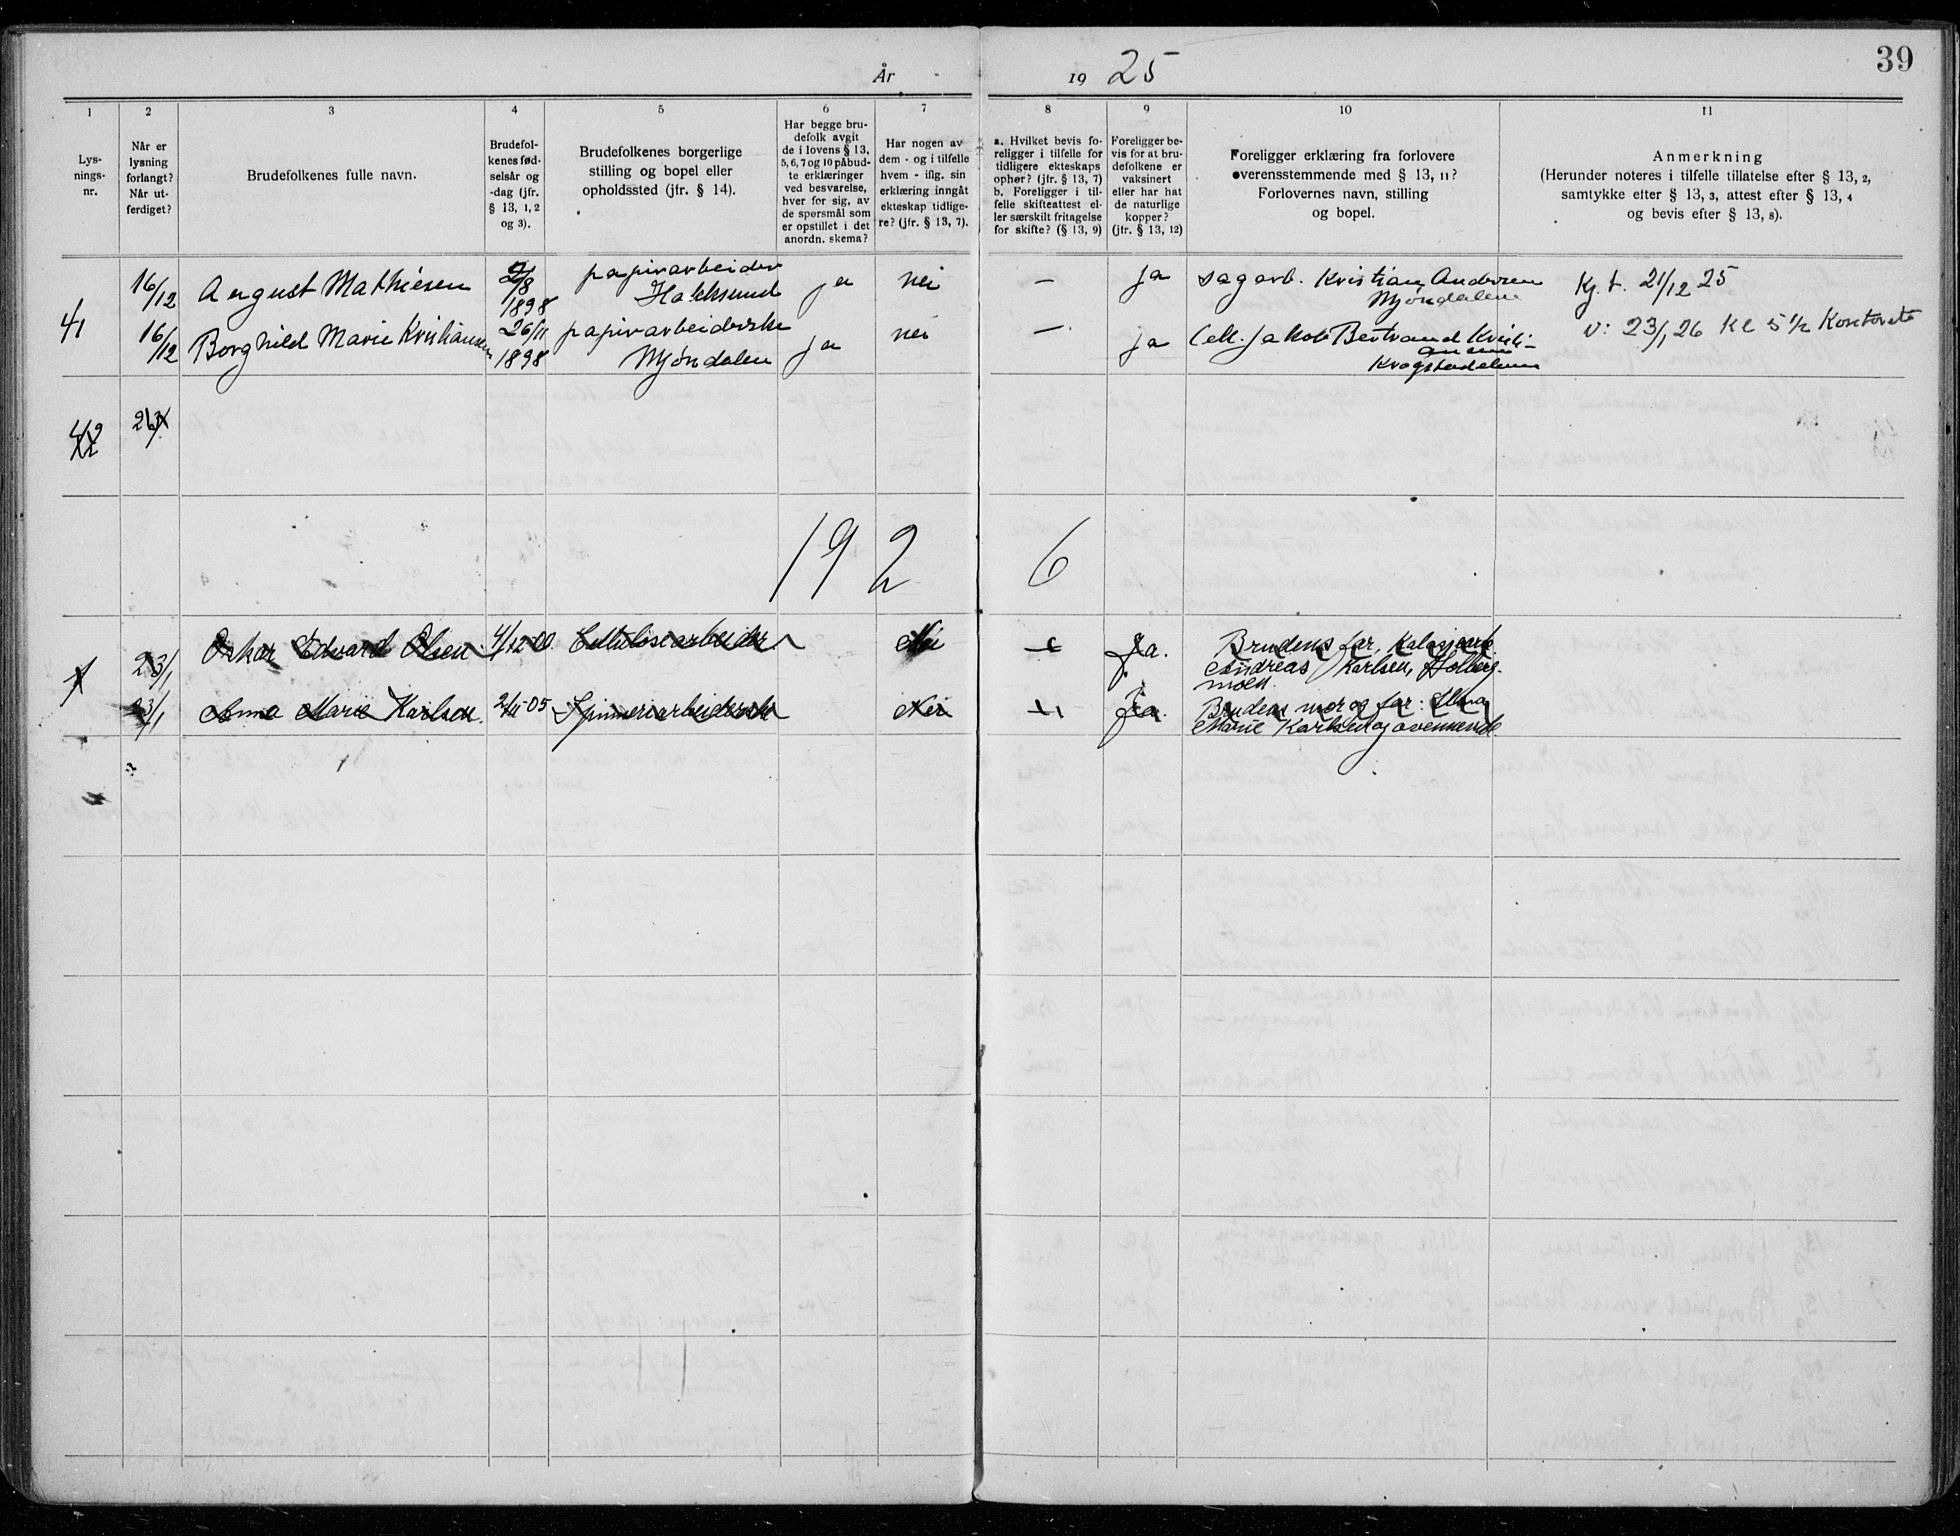 39
År 1925
1 2 3 4 5 6 7 8 9 10 11
Lys-
nings-
nr.
Når er
lysning
forlangt?
Når ut-
ferdiget?
Brudefolkenes fulle navn.
Brudefol-
kenes fød-
selsår og
-dag (jfr.
§ 13, 1, 2
og 3).
Brudefolkenes borgerlige
stilling og bopel eller
opholdssted (jfr. § 14).
Har begge bru-
defolk avgit
de i lovens § 13,
5, 6, 7 og 10 påbud-
te erklæringer
ved besvarelse,
hver for sig, av
de spørsmål som
er opstillet i det
anordn. skema?
Har nogen av
dem - og i tilfelle
hvem - iflg. sin
erklæring inngått
ekteskap tidlige-
re? (jfr. § 13, 7).
a. Hvilket bevis fo-
religger i tilfelle for
tidligere ekteskaps
ophør? (jfr. § 13, 7)
b. Foreligger i til-
felle skifteattest el-
ler særskilt fritagelse
for skifte? (§ 13, 9)
Foreligger be-
vis for at bru-
defolkene er
vaksinert
eller har hat
de naturlige
kopper?
(jfr. § 13, 12)
Foreligger erklæring fra forlovere
overensstemmende med § 13, 11?
Forlovernes navn, stilling
og bopel.
Anmerkning
(Herunder noteres i tilfelle tillatelse efter § 13, 2,
samtykke efter § 13, 3, attest efter § 13, 4
og bevis efter § 13, 8).
41
16/12 August Mathiesen 2/8 1898 papirarbeider ja nei — ja sagarb. Kristian Andersen Kj. t. 21/12 25
Hokksund
Mjøndalen
16/12 Borghild Marie Kristiansen 26/11 1898 papirarbeiderske ja nei — ja cell. Jakob Bertrand Kristi- V: 23/1 26 Kl 5 1/2 Kontoret
Mjøndalen
ansen
Krogstadelven
42
1926
1 23/1 Oskar Edvard Olsen 4/12-00. Cellulosearbeider Nei — Ja. Brudens far,
Andreas Karlsen, Solberg-
moen.
23/1 Anna Marie Karlsen. 2/11-05 Spinneriarbeiderske Nei — Ja. Brudens mor og far:
Marie Karlsen og ovennevnte